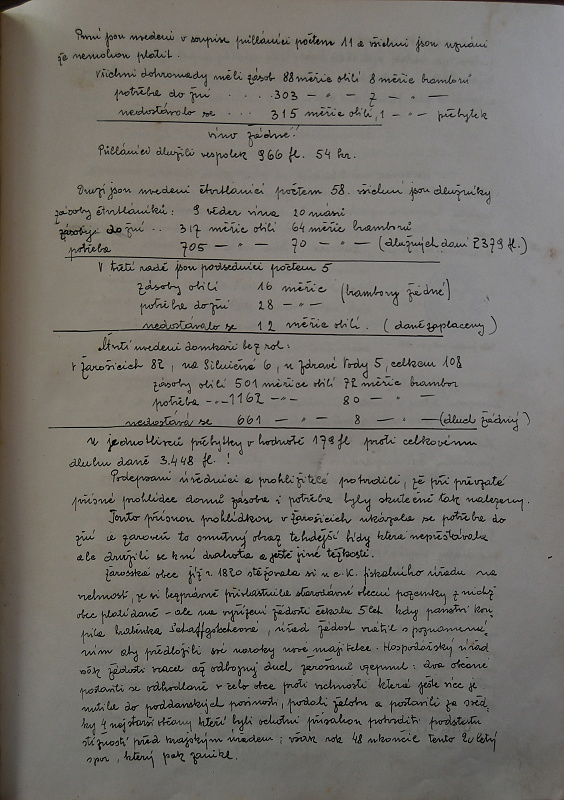 První jsou uvedeni v soupise půlláníci počtem 11 a všichni jsou uznáni
že nemohou platit.
Všichni dohromady měli zásob 88 měřic obilí 8 měřic bramborů
potřeba do žní . . . . 303 — " — 7 — " —
nedostávalo se . . . 315 měřic obilí, 1 — " — přebytek
víno žádné!
Půlláníci dlužili vespolek 966 fl. 54 kr.
Druzí jsou uvedeni čtvrtláníci počtem 58. všichni jsou dlužníky
zásoby čtvrtláníků: 9 věder vína 20 másů
do žní .. 317 měřic obilí 64 měřic bramborů
potřeba 705 — " — 70 — " — (dlužných daní 2379 fl.)
V třetí řadě jsou podsedníci počtem 5
zásoby obilí 16 měřic (brambory žádné)
potřeba do žní 28 — " —
nedostávalo se 12 měřic obilí. (daně zaplaceny)
Čtvrtí uvedeni domkaři bez rolí:
v Žarošicích 82, na Silničné 6, u Zdravé Vody 5, celkem 108
zásoby obilí 501 měřice obilí 72 měřic brambor
potřeba — " — 1162 — " — 80 — " —
nedostává se 661 — " — 8 — " — (dluh žádný)
U jednotlivců přebytky v hodnotě 179 fl. proti celkovému
dluhu daně 3.448 fl. !
Podepsaní úředníci a prohlížitelé potvrdili, že při převzaté
přísné prohlídce domů zásoba i potřeba byly skutečně tak nalezeny.
Touto přísnou prohlídkou v Žarošicích ukázala se potřeba do
žní a zároveň to smutný obraz tehdejší bídy která nepřeškávala
ale družili se k ní drahota a ještě jiné těžkosti.
Žarošská obec již r. 1820 stěžovala si u c. K. fiskálního úřadu na
vrchnost, že si bezprávně přivlastnila starodávné obecní pozemky z nichž
obec platí daně - ale na vyřízení žádosti čekala 5 let kdy panství kou-
pila hraběnka Schaffgotschová, úřad žádost vrátil s poznamená-
ním aby předložili své nároky nové majitelce. Hospodářský úřad
však žádosti vracel až odbojný duch žarošané vzepnul: dva občané
postavili se odhodlaně v čelo obce proti vrchnosti která ještě více je
nutila do poddanských povinností, podali žalobu a postavili za svěd-
ky 4 nejstarší občany kteří byli ochotni přísahou potvrditi podstatu
stížností před krajským úřadem; však rok 48 ukončil tento 20 letý
spor, který pak zanikl.